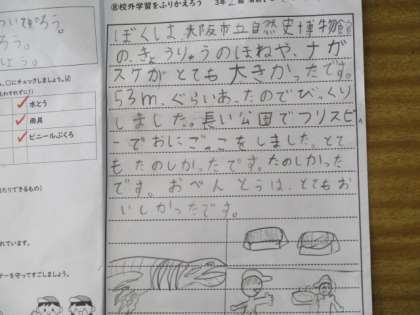 ついてかろう。
ろう。
しょう。
しにチェックしましょう。
水とう
雨具
ビニールぶくろ
⑧校外学習をふりかえろう　3年
ぼくしま、大阪市立自然史博物館
の、きょうりゅうのほねや、ナガ
スゲがとても大きかったです。
53m、ぐらいあったのでびっくり
しました。長い公園でフリスビ
ーでおにごっこをしました。とて
もたのしかったです。たのしかった
です。おべんとうは、とてもお
いしかったです。
れています。
ナーを守ってすごしましょう。